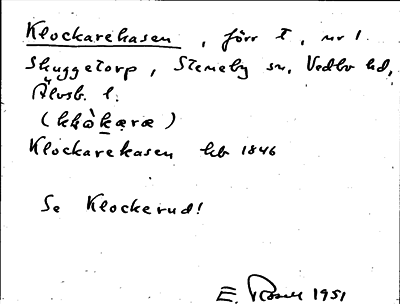 Klockarekasen, förr t, nr 1
Skuggetorp, Steneby sn, Vedbo hd,
Älvsb. l.
(kḷòkæræ)
Klockarekasen hb 1846
Se Klockerud!
E. 1951